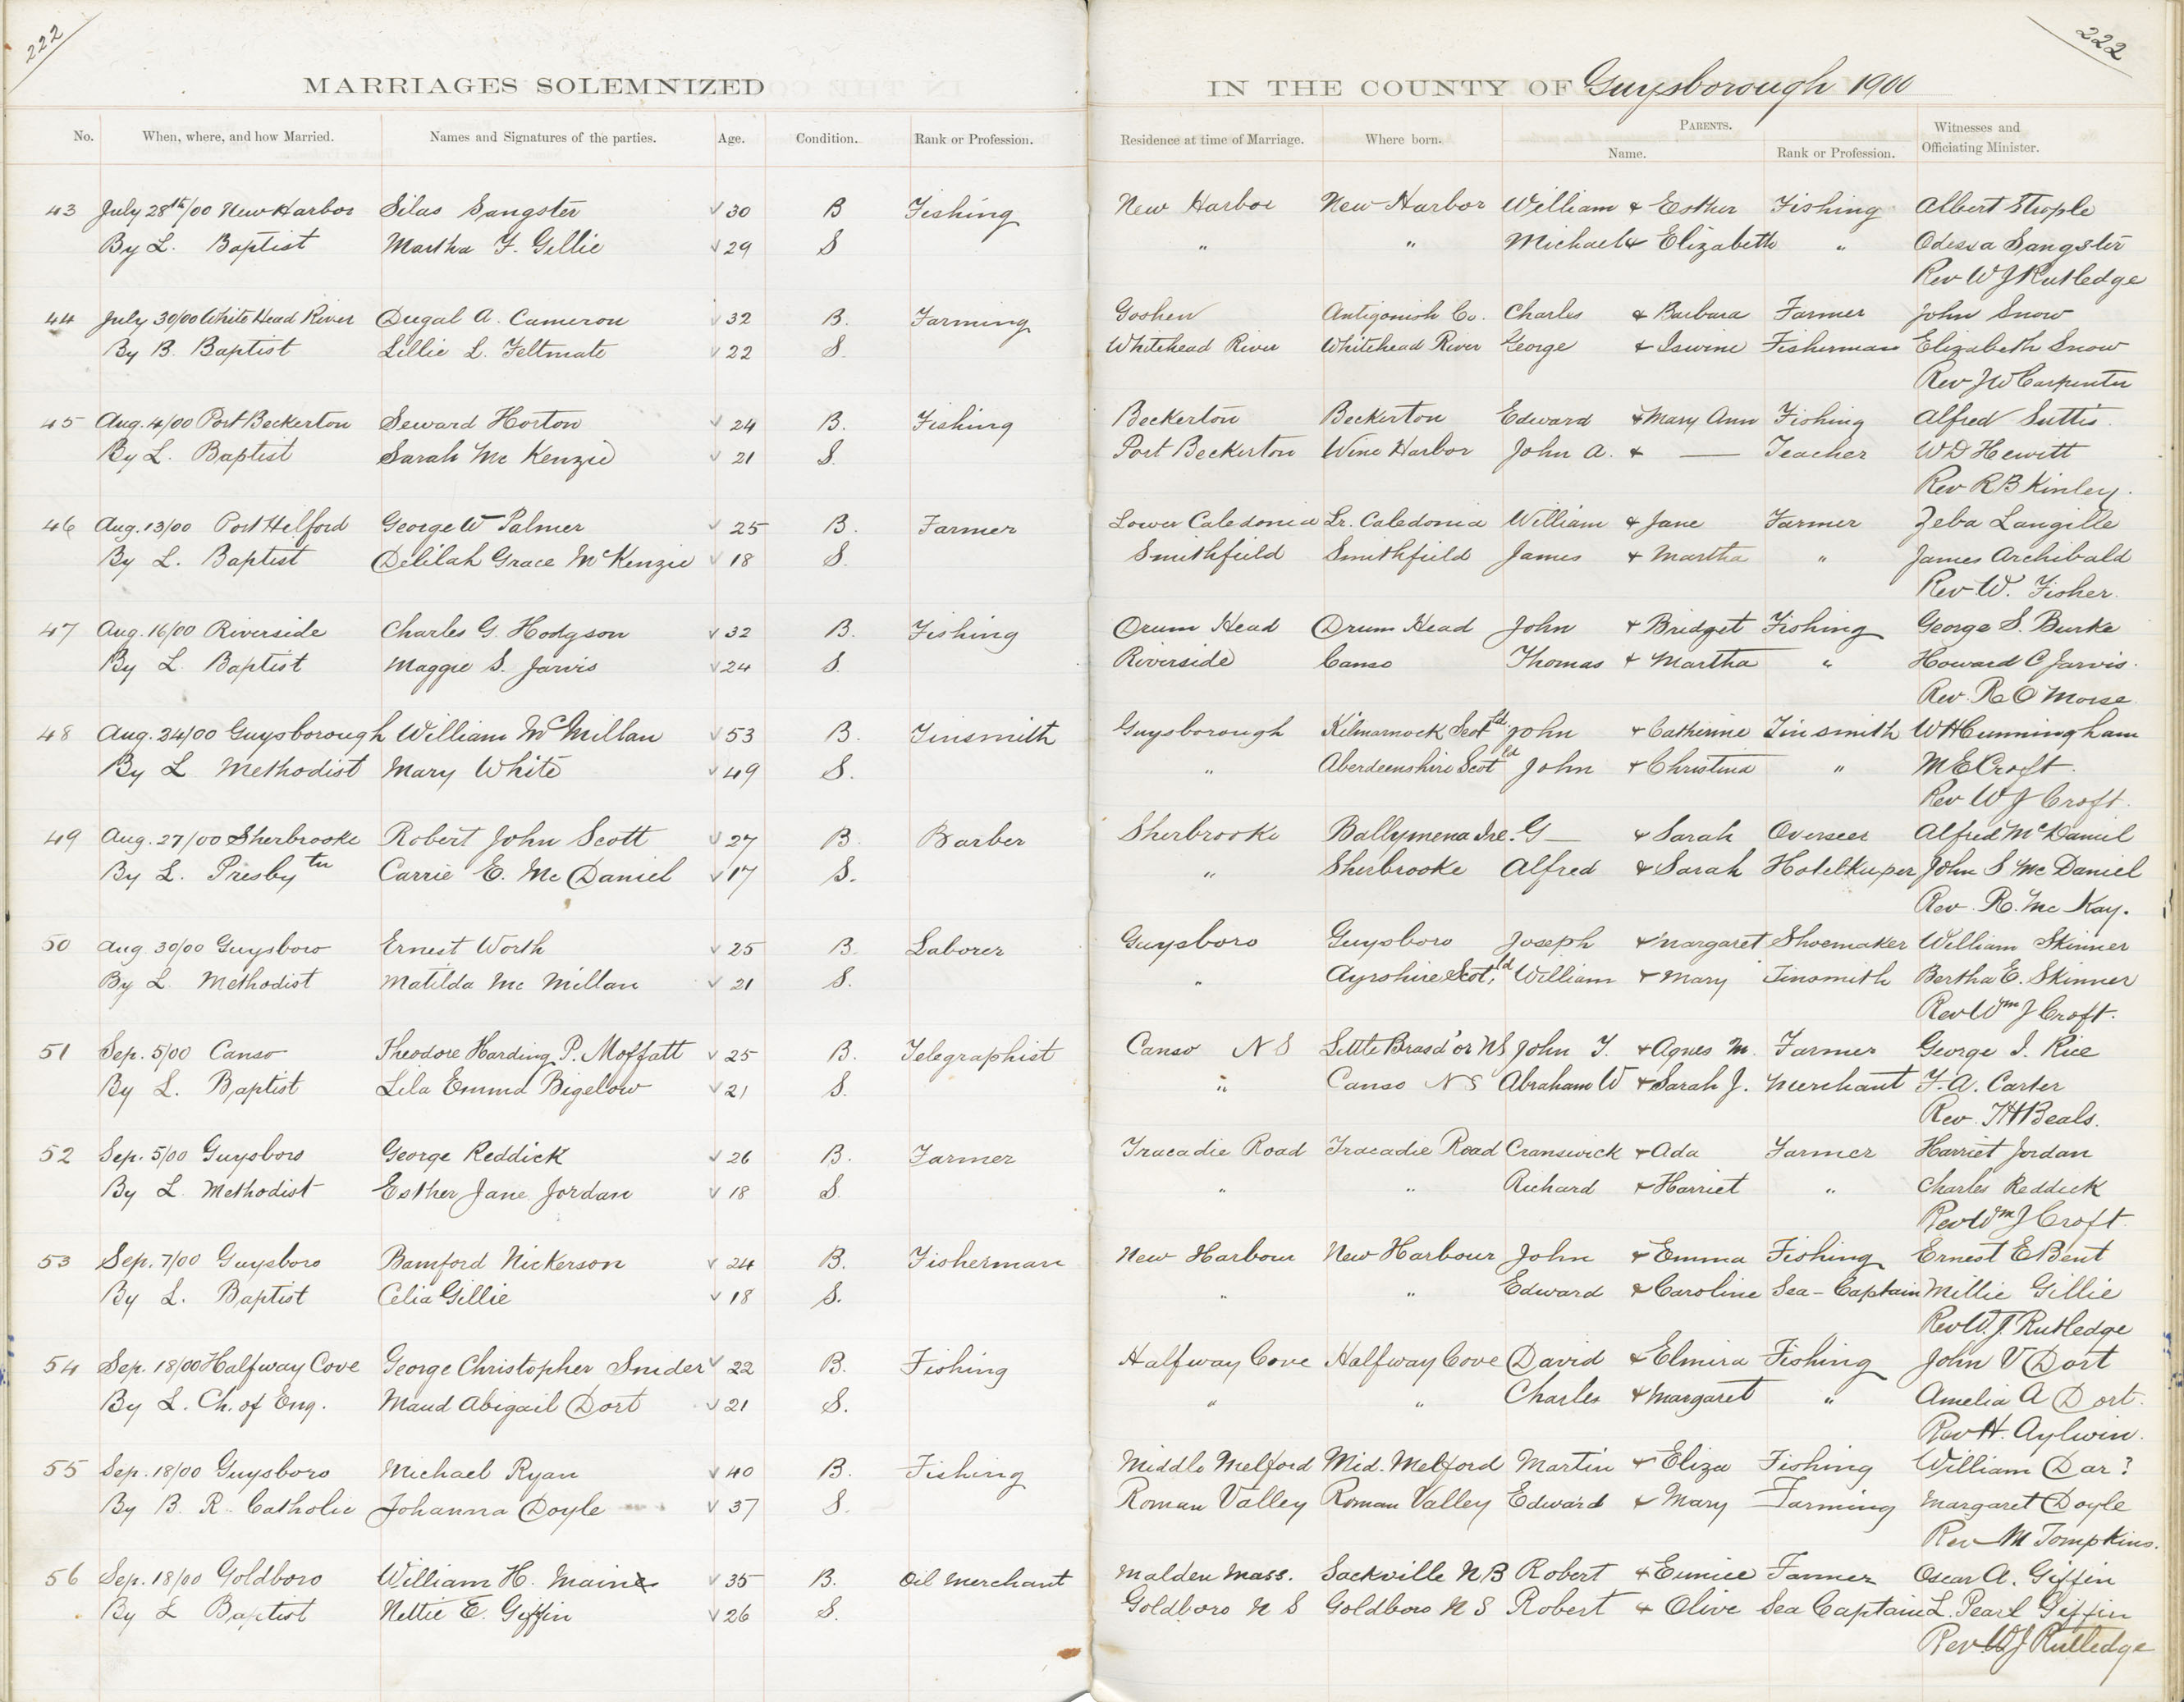 222
222
MARRIAGES SOLEMNIZED IN THE COUNTY OF Guysborough 1900
No. When, where, and how Married. Names and Signatures of the parties. Age. Condition. Rank or Profession. Residence at time of Marriage. Where born. PARENTS. Name. Rank or Profession. Witnesses and Officiating Minister.
43 July 28th/00 New Harbor Silas Sangster √ 30 B Fishing New Harbor New Harbor William & Esther Fishing Albert Strople
By L. Baptist Martha F. Gillie √ 29 S " " Michael & Elizabeth " Odessa Sangster
Rev W J Rutledge
44 July 30/00 White Head River Dugal A. Cameron √ 32 B. Farming Goshen Antigonish Co. Charles & Barbara Farmer John Snow
By B. Baptist Lillie L. Feltmate √ 22 S. Whitehead River Whitehead River George & Iswine Fisherman Elizabeth Snow
Rev J W Carpenter
45 Aug. 4/00 Port Beckerton Seward Horton √ 24 B. Fishing Beckerton Beckerton Edward & Mary Ann Fishing Alfred Suttis.
By L. Baptist Sarah Mc Kenzie √ 21 S. Port Beckerton Wine Harbor John A. & — Teacher W D Hewitt
Rev R B Kinley.
46 Aug. 13/00 Port Hilford George W Palmer √ 25 B. Farmer Lower Caledonia Lr. Caledonia William & Jane Farmer Zeba Langille
By L. Baptist Delilah Grace McKenzie √ 18 S. Smithfield Smithfield James & Martha " James Archibald
Rev W. Fisher.
47 Aug. 16/00 Riverside Charles G. Hodgson √ 32 B. Fishing Drum Head Drum Head John & Bridget Fishing George S. Burke
By L. Baptist Maggie S. Jarvis √ 24 S. Riverside Canso Thomas & Martha " Howard C Jarvis.
Rev. R O Morse
48 Aug. 24/00 Guysborough William McMillan √ 53 B. Tinsmith Guysborough Kilmarnock Scotld. John & Catherine Tinsmith W H Cunningham
By L Methodist Mary White √ 49 S. " Aberdeenshire Scotld John & Christina " M E Croft.
Rev W J Croft.
49 Aug. 27/00 Sherbrooke Robert John Scott √ 27 B. Barber Sherbrooke Ballymena Ire. G — & Sarah Overseer Alfred McDaniel
By L. Presbytn Carrie E. Mc Daniel √ 17 S. " Sherbrooke Alfred & Sarah Hotelkeeper John S Mc Daniel
Rev. R. Mc Kay.
50 Aug. 30/00 Guysboro Ernest Worth √ 25 B. Laborer Guysboro Guysboro Joseph & Margaret Shoemaker William Skinner
By L. Methodist Matilda Mc Millan √ 21 S. " Ayrshire Scot.ld William & Mary Tinsmith Bertha E. Skinner
Rev Wm J Croft.
51 Sep. 5/00 Canso Theodore Harding P. Moffatt √ 25 B. Telegraphist Canso N S Little Bras d'or N S John T. & Agnes M. Farmer George I. Rice
By L. Baptist Lila Emma Bigelow √ 21 S. " Canso N S Abraham W & Sarah J. Merchant F. A. Carter
Rev. T H Beals.
52 Sep. 5/00 Guysboro George Reddick √ 26 B. Farmer Tracadie Road Tracadie Road Cranswick & Ada Farmer Harriet Jordan
By L Methodist Esther Jane Jordan √ 18 S. " " Richard & Harriet " Charles Reddick
Rev Wm J Croft.
53 Sep. 7/00 Guysboro Bamford Nickerson √ 24 B. Fisherman New Harbour New Harbour John & Emma Fishing Ernest E Bent
By L. Baptist Celia Gillie √ 18 S. " " Edward & Caroline Sea-Captain Millie Gillie
Rev W. J. Rutledge
54 Sep. 18/00 Halfway Cove George Christopher Snider √ 22 B. Fishing Halfway Cove Halfway Cove David & Elmira Fishing John V Dort
By L. Ch. of Eng. Maud Abigail Dort √ 21 S. " " Charles & Margaret " Amelia A Dort.
Rev H. Aylwin.
55 Sep. 18/00 Guysboro Michael Ryan √ 40 B. Fishing Middle Melford Mid. Melford Martin & Eliza Fishing William Dar?
By B. R. Catholic Johanna Doyle √ 37 S. Roman Valley Roman Valley Edward & Mary Farming Margaret Doyle
Rev M Tompkins.
56 Sep. 18/00 Goldboro William H. Maine √ 35 B. Oil Merchant Malden Mass. Sackville N B Robert & Eunice Farmer Oscar A. Giffin
By L Baptist Nettie E. Giffin √ 26 S. Goldboro N S Goldboro N S Robert & Olive Sea Captain L. Pearl Giffin
Rev W J Rutledge